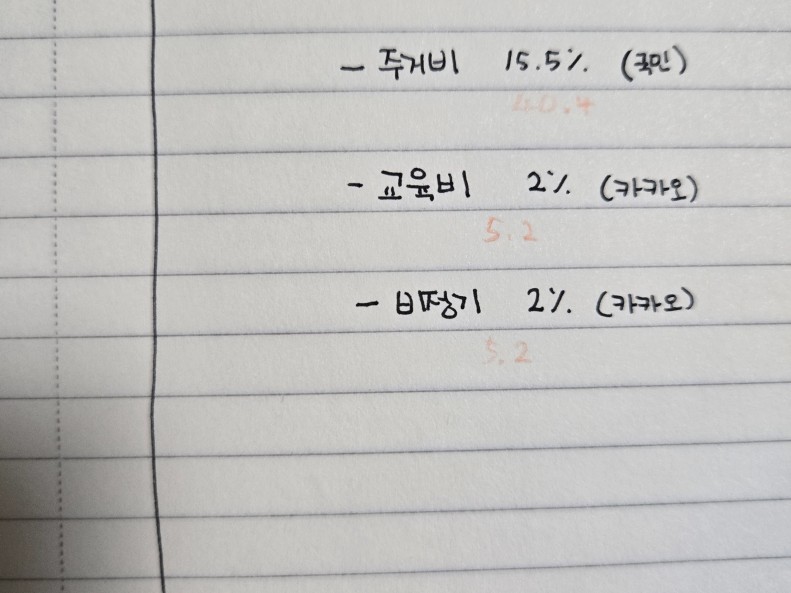 - 주거비 15.5% (국민)
40.4
- 교육비 2% (카카오)
5.2
- 비정기 2% (카카오)
5.2